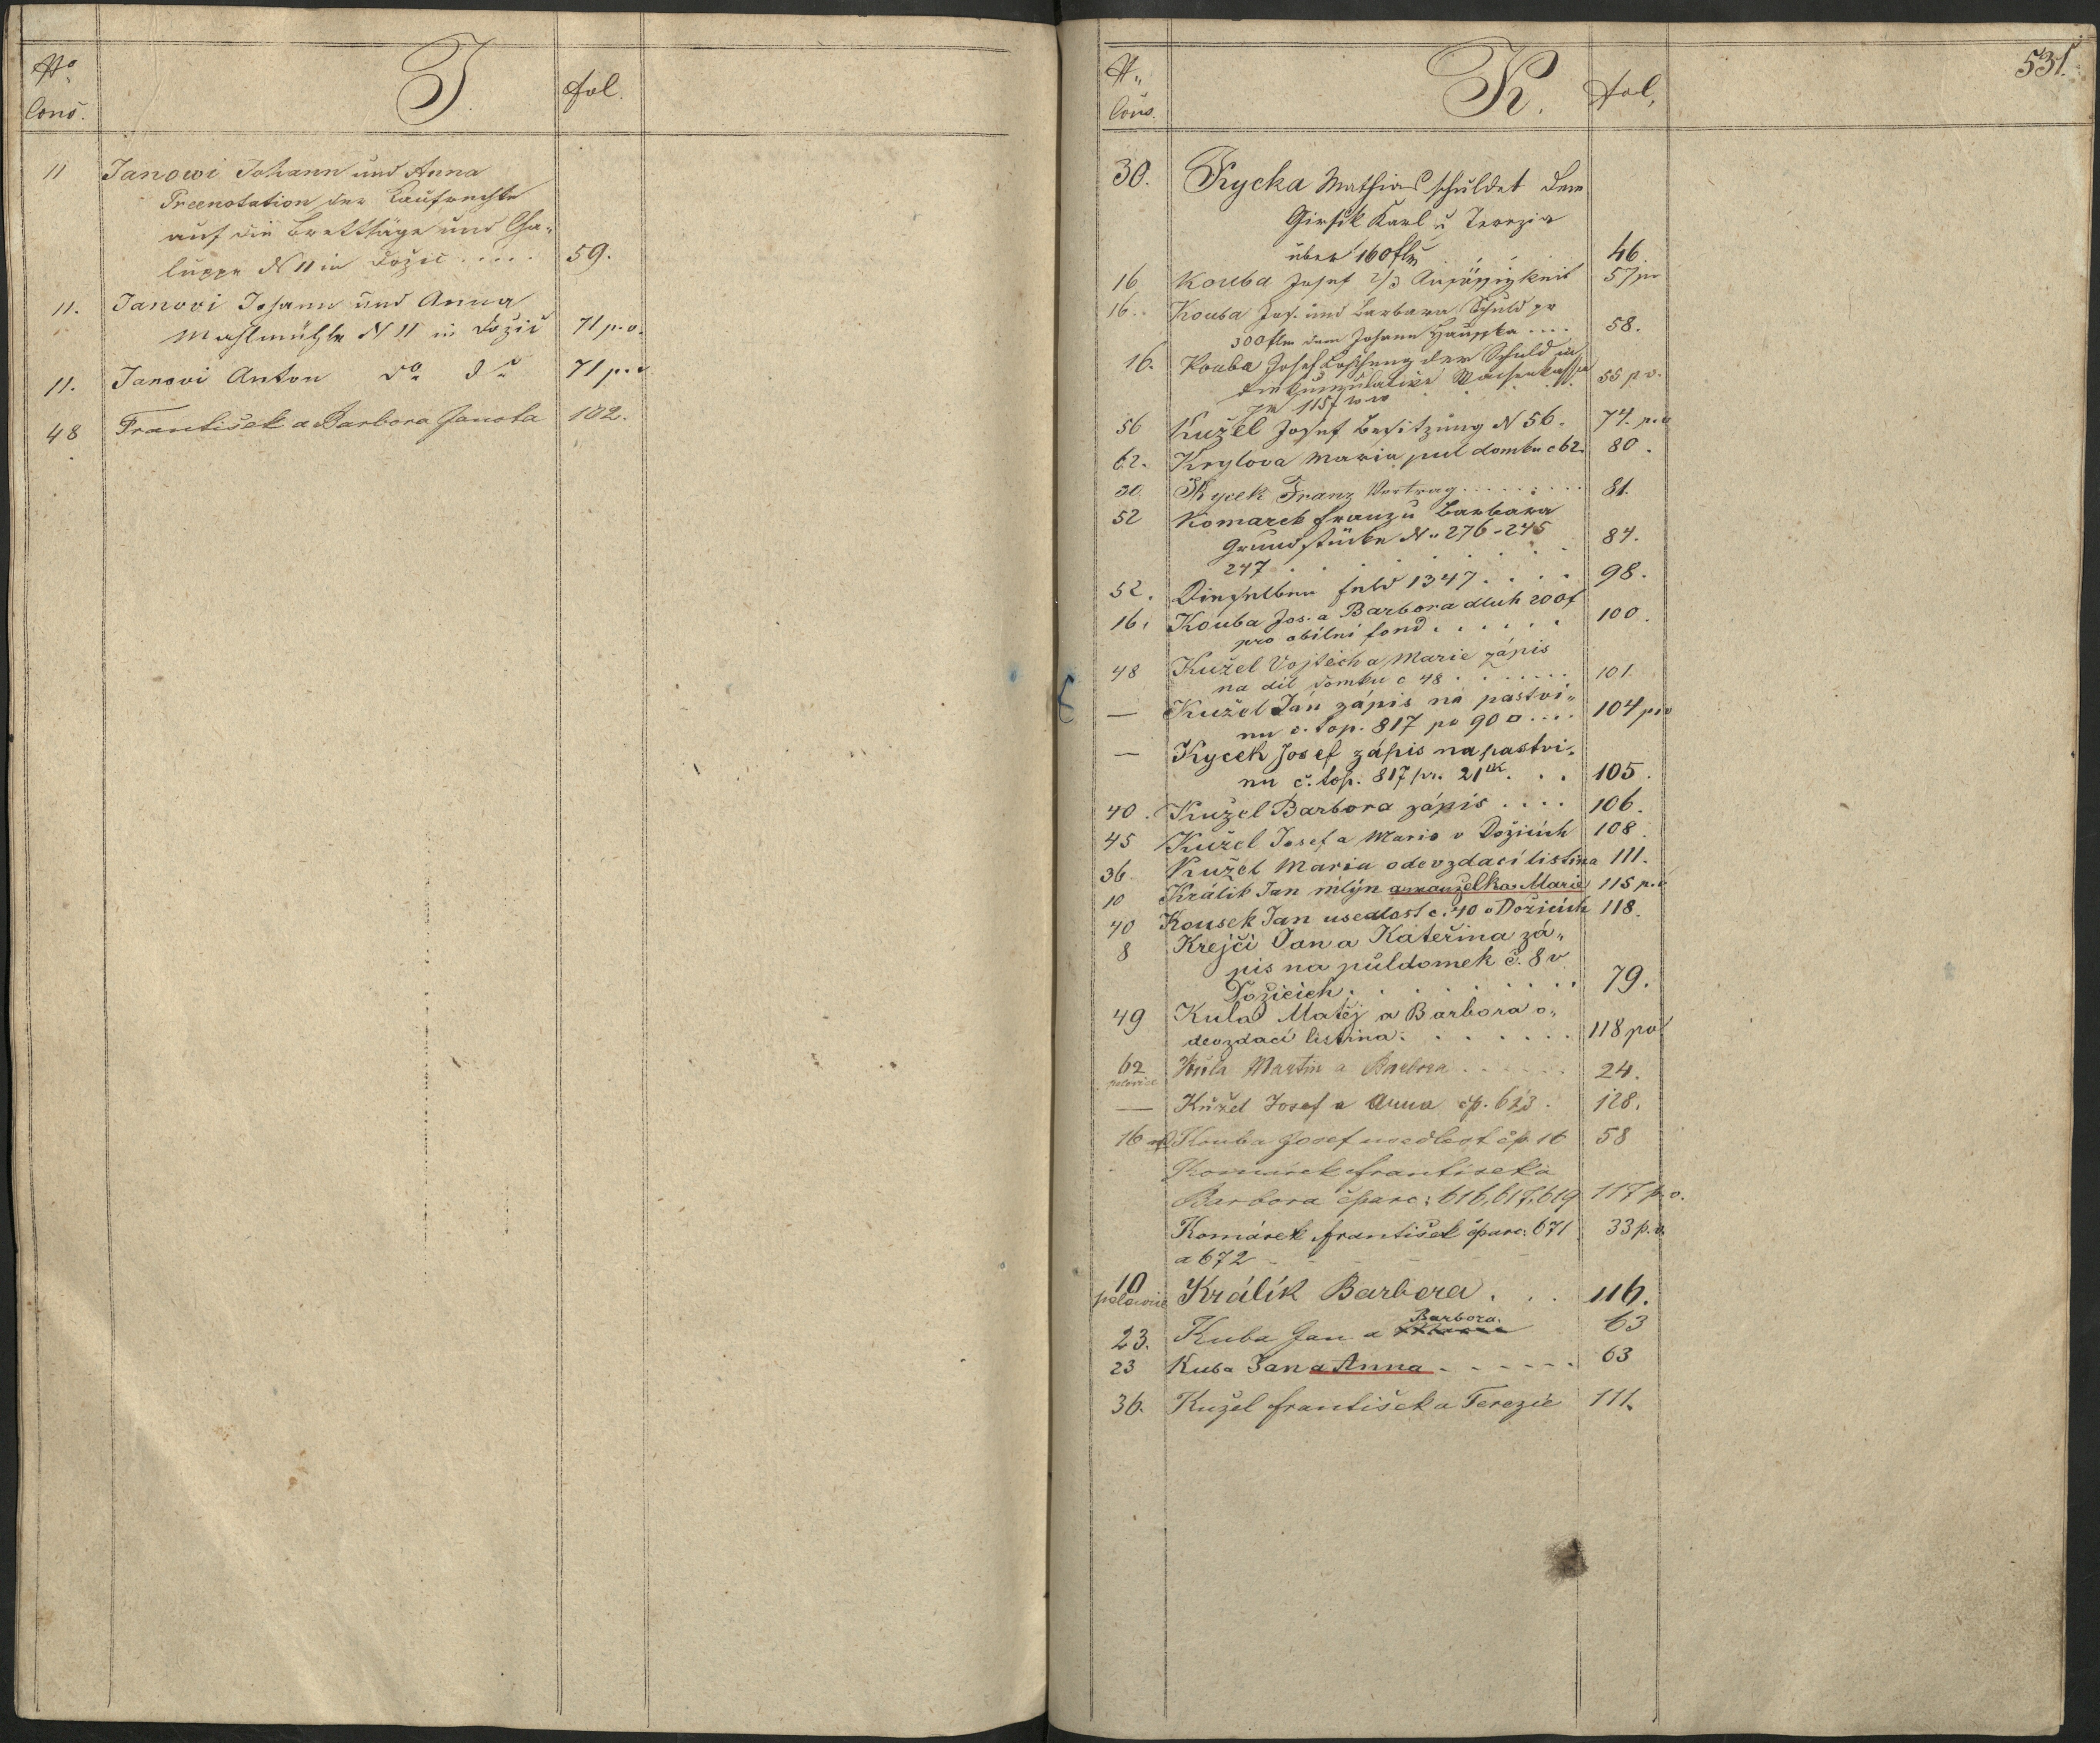 No
Cons.
J.
Fol.
11 Janowi Johann und Anna
Preenotation der Kaufrechte
auf die Brettsäge und Cha-
luppe N 11 in Dožic ..... 59.
11. Janovi Johann und Anna
Mahlmühle N 11 in Dožic 71 p.v.
11. Janovi Anton do do 71 p.v
48 František a Barbora Janota 102.
531.
N.
Cons.
K.
Fol.
30. Kycka Mathias schuldet dem
Girsik Karl u Terezia
über 160 fl 46.
16 Kouba Josef 2/3 Ansässigkeit 57 pv
16. Kouba Jos. und Barbara Schuld pr
300 flm dem Johann .... 58.
16. Kouba Josef Löschung der Schuld in
die Kumulative Waisenkassa
pr 115 f ww 55 p v.
56 Kužel Josef Besitzung N 56. 74. p.v
62. Krylova Maria pul domku c 62. 80.
30. Kycek Franz Vertrag ......... 81.
52 Komarek Franz u Barbara
Grundstücke N. 276-245
247 ...... 84.
52. Dieselben Feld 1347 .... 98.
16. Kouba Jos. a Barbora dluh 200 f
pro obilni fond ...... 100.
48 Kužel Vojtěch a Marie zápis
na díl domku c 48 ....... 101.
— Kužel Ján zápis na pastvi-
nu č. top. 817 po 90 □ .... 104 p.v
— Kycek Josef zápis na pastvi-
nu č. top. 817 pr. 21 ... 105.
40. Kužel Barbora zápis .... 106.
45 Kužel Josef a Marie v Dožicích 108.
36. Kužel Maria odevzdací listina 111.
10 Králik Jan mlýn a manželka Marie 115 p.v
40 Kousek Jan usedlost c. 40 v Dožicích 118.
8 Krejčí Jan a Kateřina zá-
pis na půldomek č. 8 v
Dožicích ......... 79.
49 Kula Matěj a Barbora o-
devzdací listina ....... 118 po
62 Kula Martin a Barbora ...... 24.
polovice
— Kužel Josef a Anna čp. 613. 128.
16 Kouba Josef usedlost čp. 16 58
Komárek František a
Barbora čparc: 616, 617, 619 117 p.v.
Komárek František čparc: 671 33 p.v.
a 672 - - - -
10 Králík Barbora ... 116.
polovice
Barbora.
23. Kuba Jan a 63
23 Kuba Jan a Anna - - - - - 63
36. Kužel František a Terezie 111.